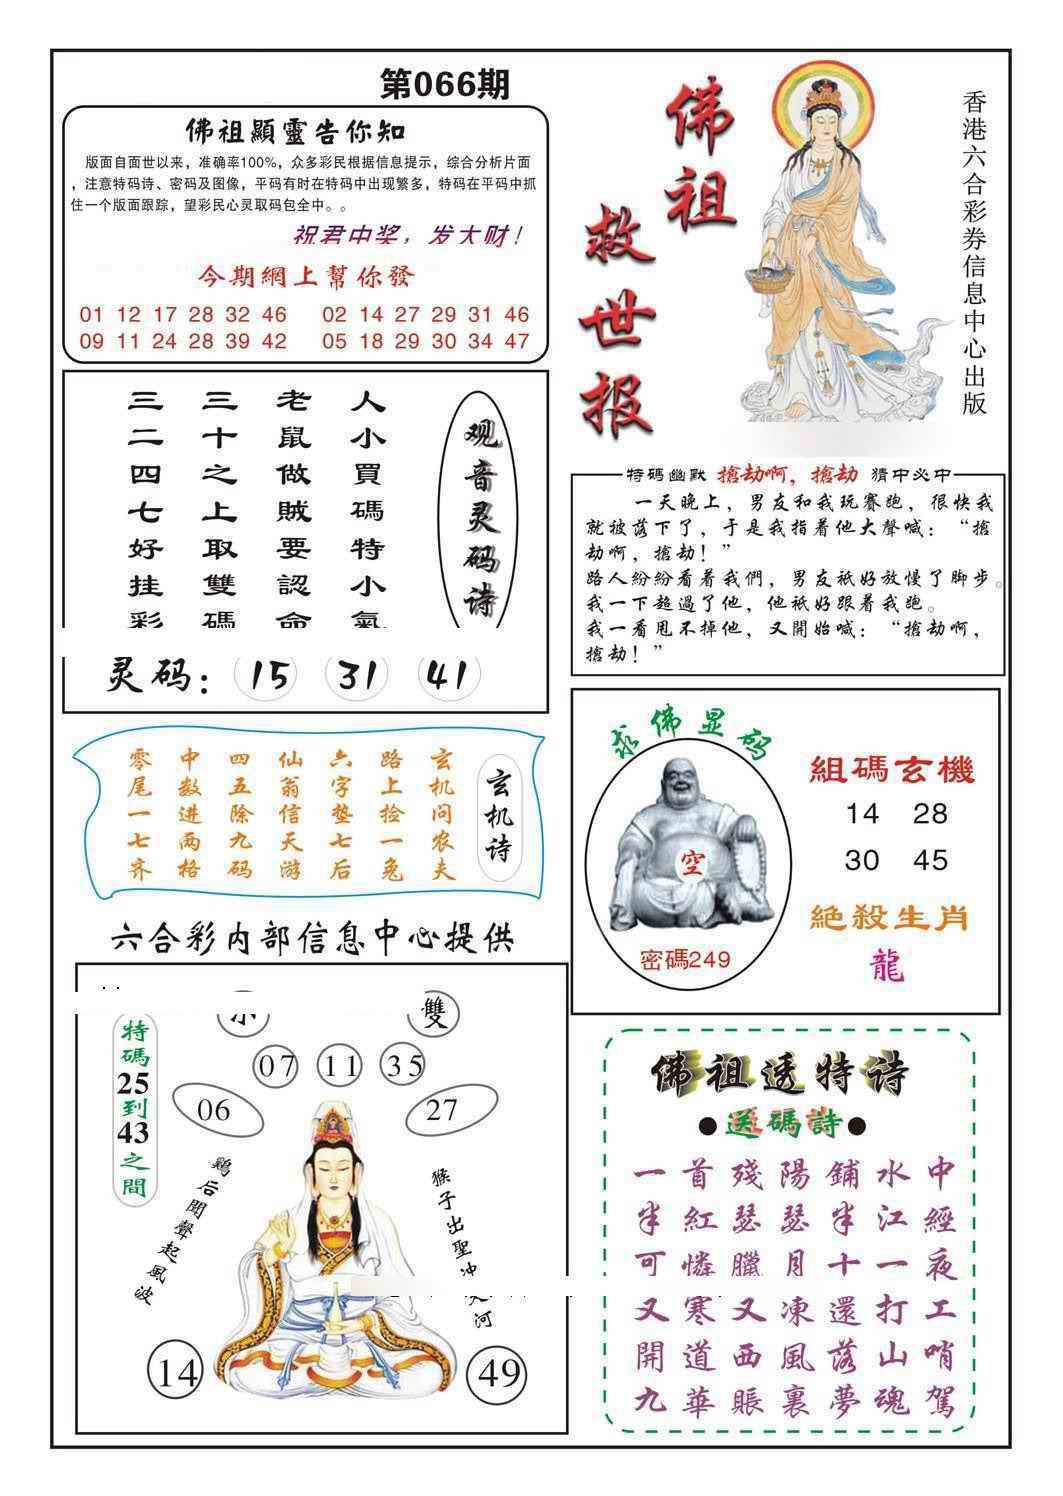 第066期
佛祖顯靈告你知
版面自面世以来，准确率100%，众多彩民根据信息提示，综合分析片面
，注意特码诗、密码及图像，平码有时在特码中出现繁多，特码在平码中抓
住一个版面跟踪，望彩民心灵取码包全中。。
祝君中奖，发大财！
今期網上幫你發
01 12 17 28 32 46 02 14 27 29 31 46
09 11 24 28 39 42 05 18 29 30 34 47
佛祖
救世报
香港六合彩券信息中心出版
观音灵码诗
人小買碼特小氣
老鼠做贼要認命
三十之上取雙碼
三二四七好挂彩
灵码：15 31 41
特碼幽默 搶劫啊，搶劫 猜中必中
一天晚上，男友和我玩賽跑，很快我
就被落下了，于是我指着他大聲喊：“搶
劫啊，搶劫！”
路人紛紛看着我們，男友衹好放慢了脚步。
我一下超過了他，他衹好跟着我跑。
我一看甩不掉他，又開始喊：“搶劫啊，
搶劫！”
玄机诗
玄机问农夫
路上捡一兔
六字垫七后
仙翁信天游
四五除九码
中数进两格
零尾一七齐
求佛显码
空
密碼249
組碼玄機
14 28
30 45
絕殺生肖
龍
六合彩内部信息中心提供
特碼25到43之間
雙
07 11 35
06 27
鷄后聞聲起風波
猴子出聖冲天河
14 49
佛祖透特诗
●送碼詩●
一首殘陽鋪水中
半紅瑟瑟半江經
可憐臘月十一夜
又寒又凍還打工
開道西風落山哨
九華賬裏夢魂駕